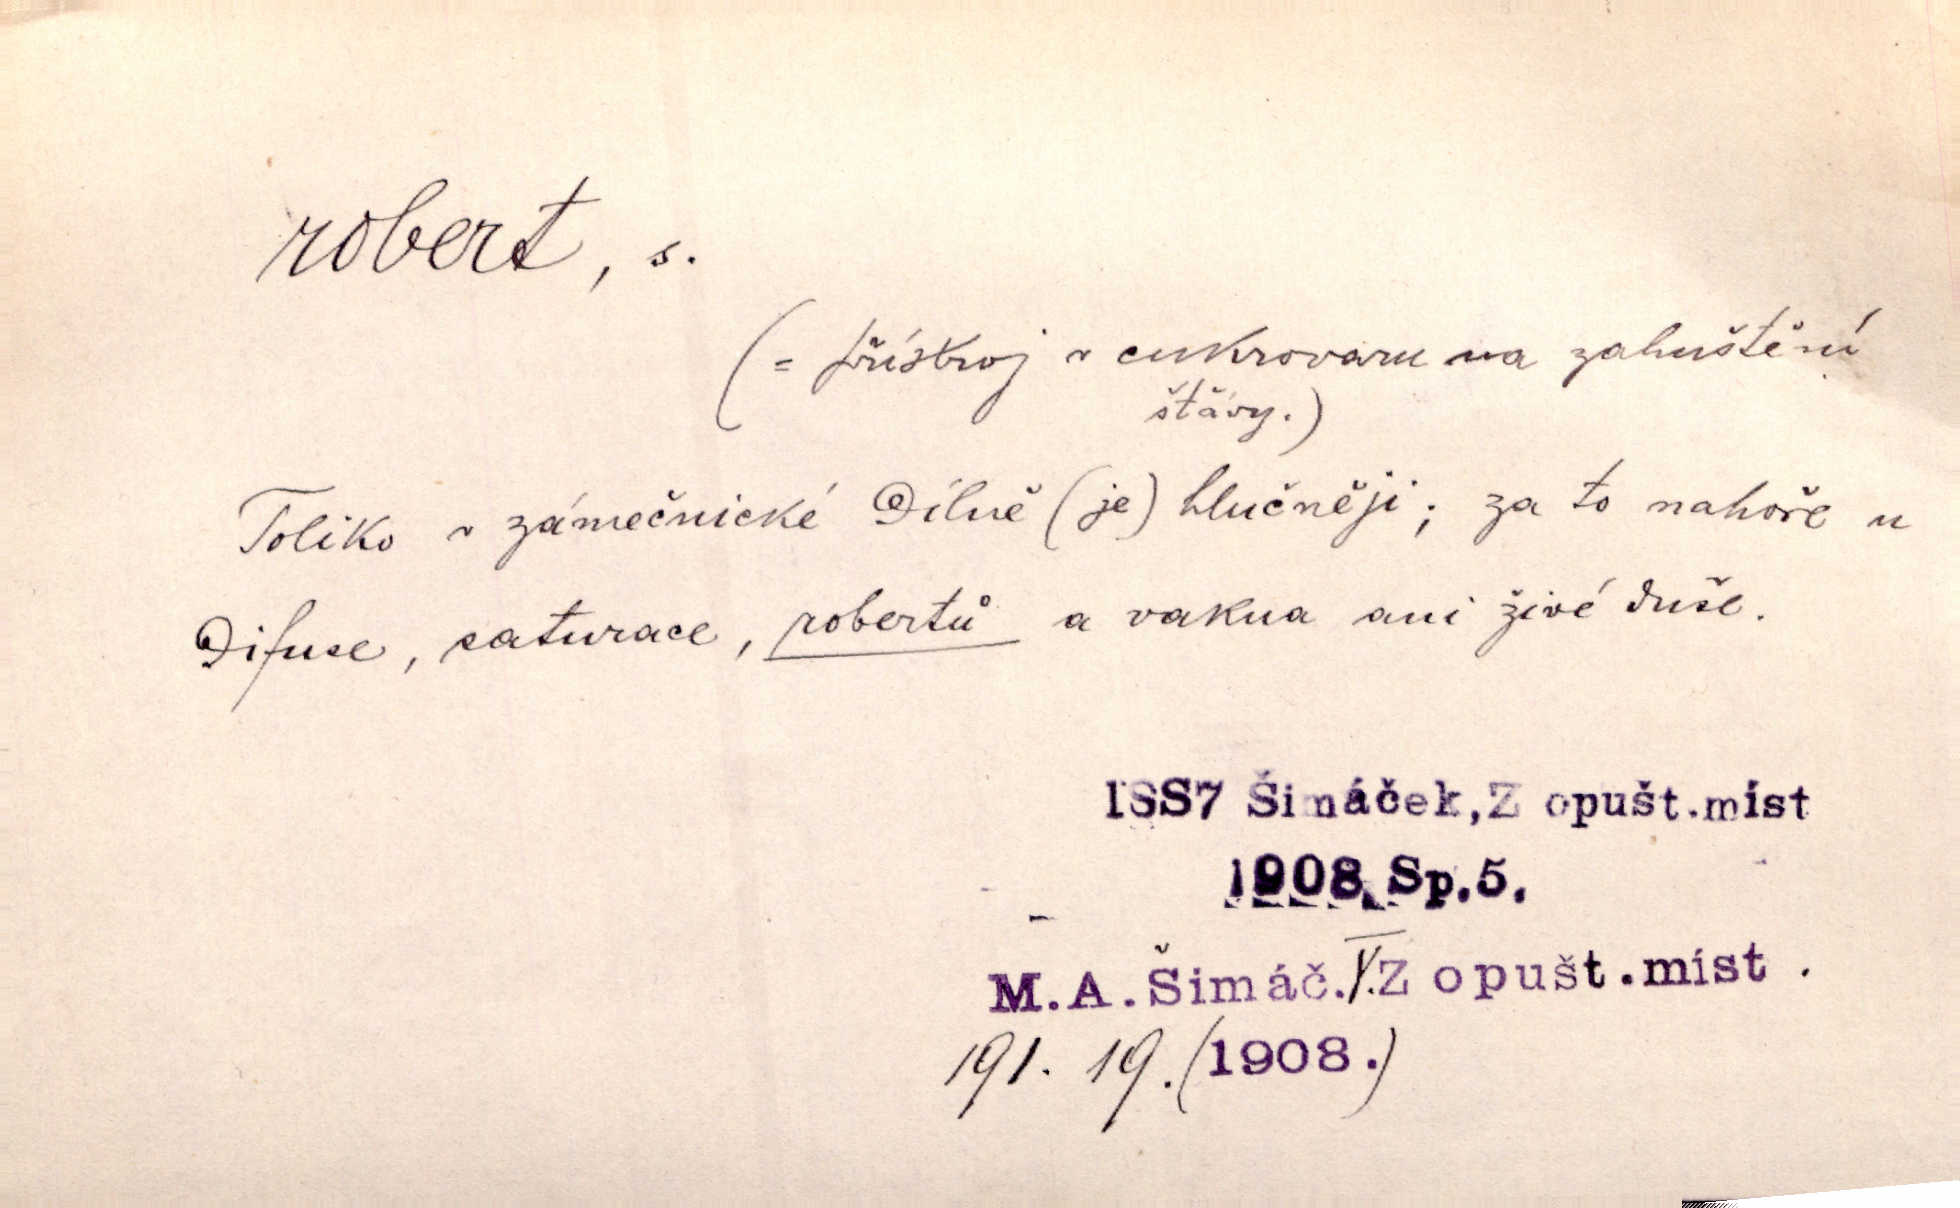 robert, s.
(= přístroj v cukrovaru na zahuštění
šťávy.)
Toliko v zámečnické dílně (je) hlučněji; za to nahoře u
difuse, saturace, robertů a vakua ani živé duše.
1887 Šimáček, Z opušt.míst
1908 Sp.5.
M.A.Šimáč.V.Z opušt.míst .
191. 19. (1908.)